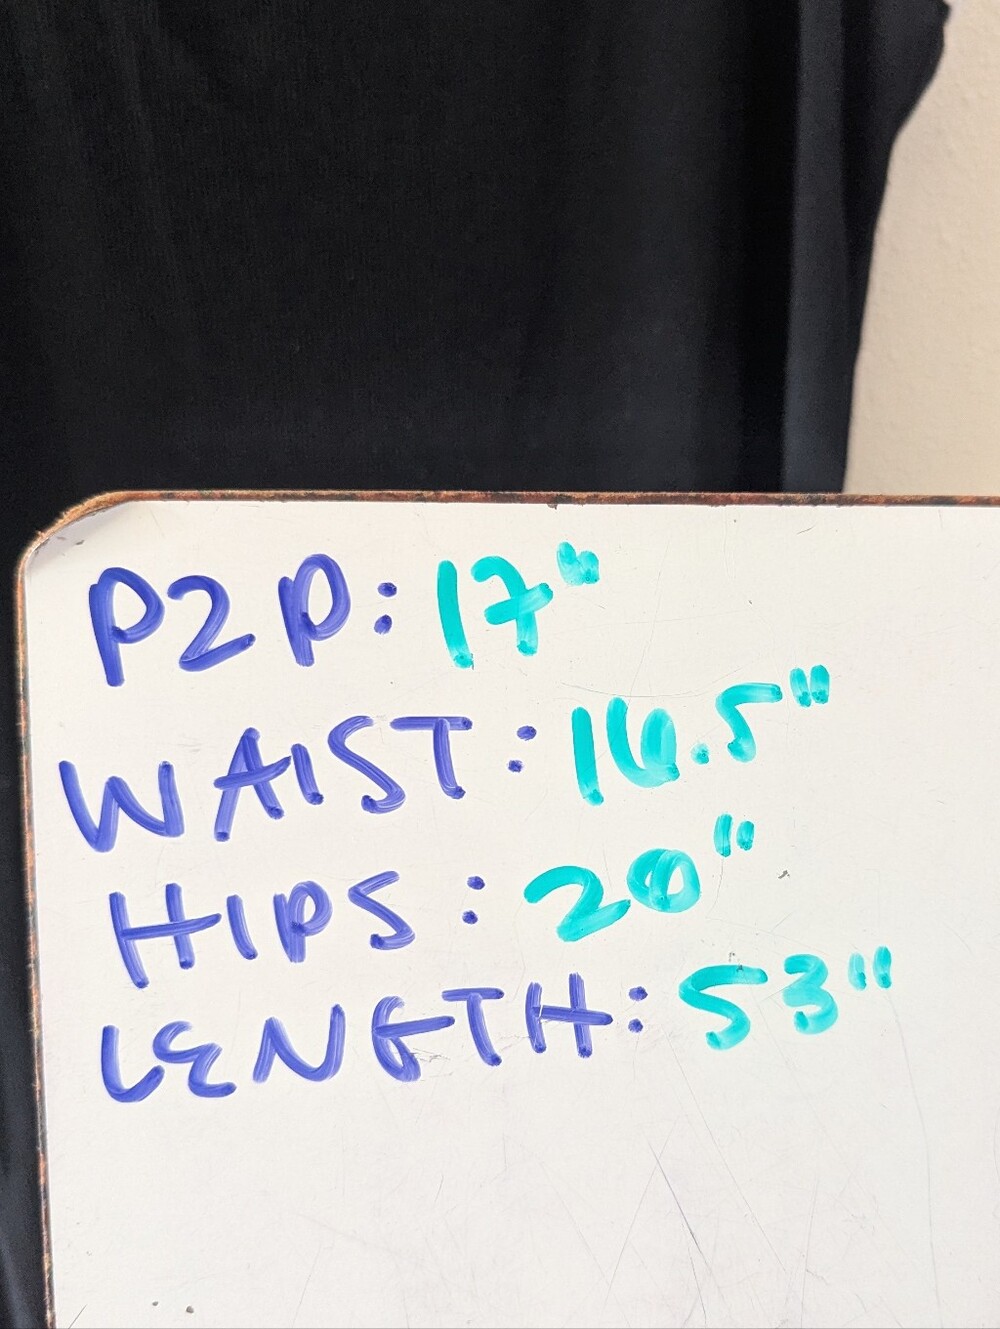 P2P: 17"
WAIST: 16.5"
HIPS: 20"
LENGTH: 53"